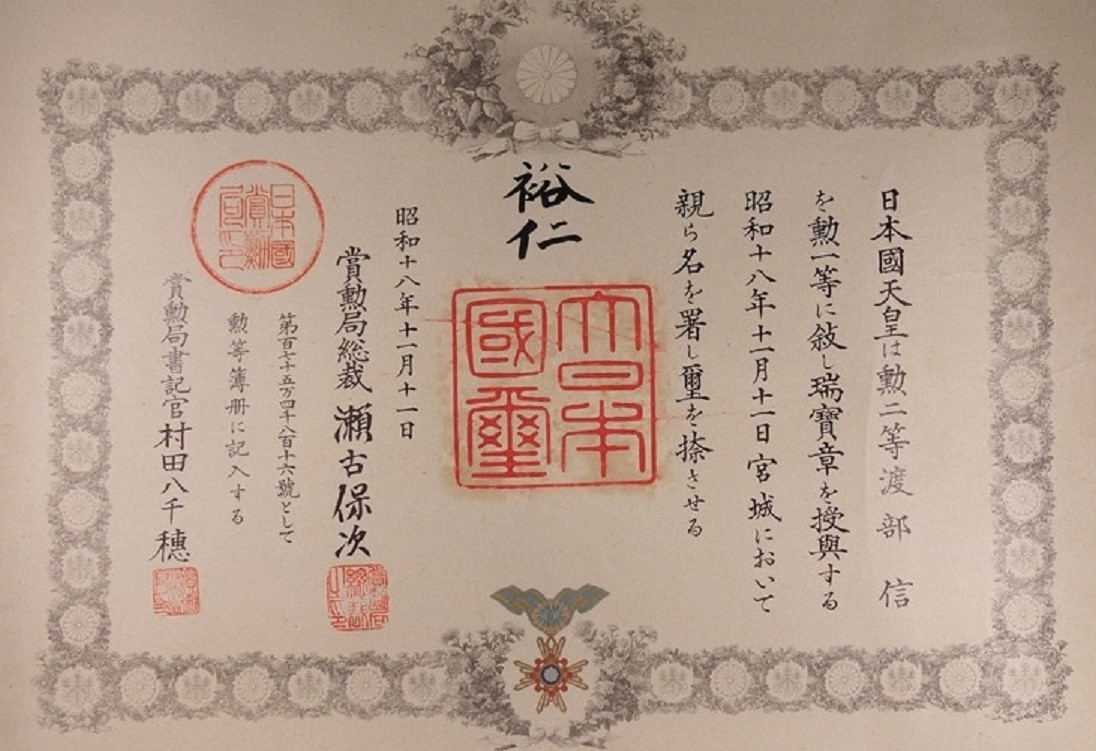 日本國天皇は勲二等渡部 信
を勲一等に敍し瑞寶章を授與する
昭和十八年十一月十一日宮城において
親ら名を署し璽を捺させる
裕仁
大日本
國璽
昭和十八年十一月十一日
賞勲局総裁 瀬古保次
第百七十五万四千八百十六號として
勲等簿册に記入する
賞勲局書記官村田八千穗
日本國
賞勲
局印